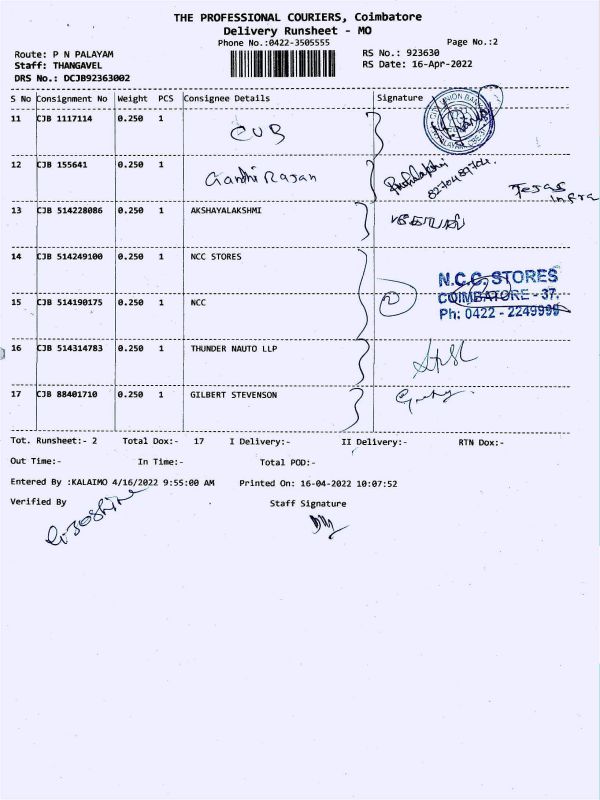 THE PROFESSIONAL COURIERS, Coimbatore
Delivery Runsheet - MO
Phone No.:0422-3505555
Page No.:2
Route: P N PALAYAM
RS No.: 923630
Staff: THANGAVEL
RS Date: 16-Apr-2022
DRS No.: DCJB92363002
S No Consignment No Weight PCS Consignee Details Signature
11 CJB 1117114 0.250 1 CUB
12 CJB 155641 0.250 1 Gandhi Rajan
Tejas
Infra
13 CJB 514228086 0.250 1 AKSHAYALAKSHMI
14 CJB 514249100 0.250 1 NCC STORES
N.C.C. STORES
COIMBATORE - 37.
Ph: 0422 - 2249999
15 CJB 514190175 0.250 1 NCC
16 CJB 514314783 0.250 1 THUNDER NAUTO LLP
17 CJB 88401710 0.250 1 GILBERT STEVENSON
Tot. Runsheet:- 2 Total Dox:- 17 I Delivery:- II Delivery:- RTN Dox:-
Out Time:- In Time:- Total POD:-
Entered By :KALAIMO 4/16/2022 9:55:00 AM Printed On: 16-04-2022 10:07:52
Verified By Staff Signature